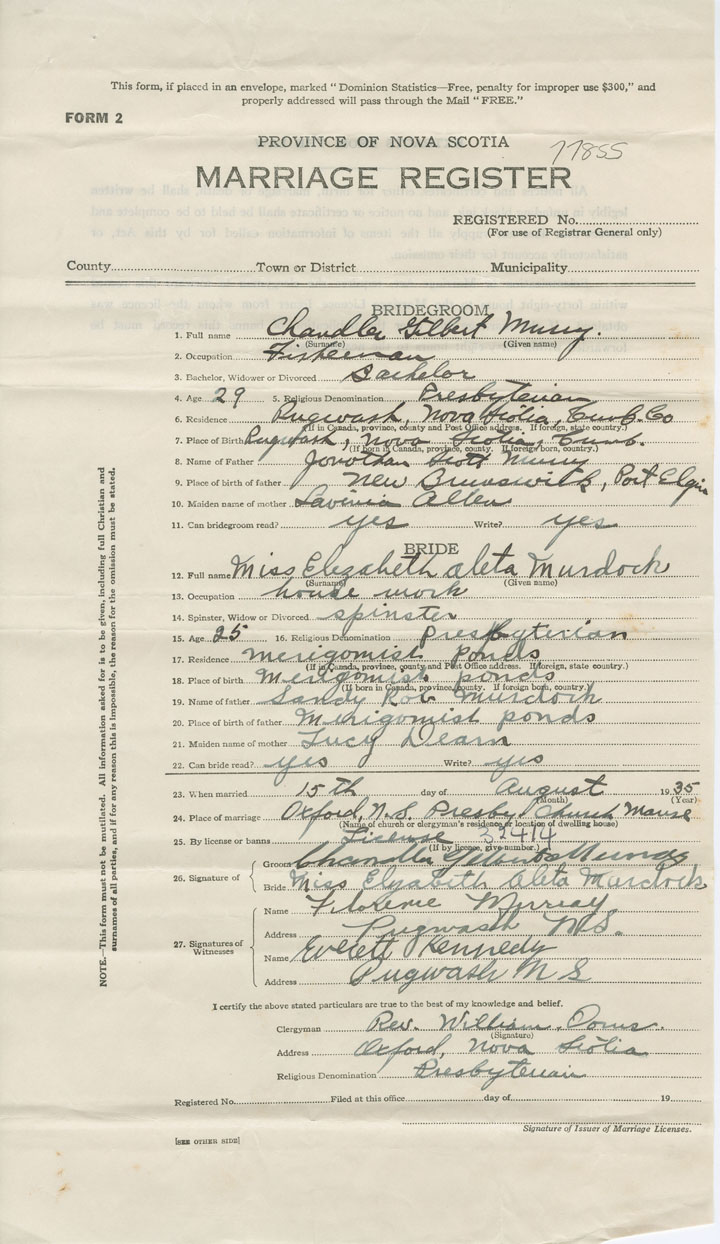 This form, if placed in an envelope, marked "Dominion Statistics—Free, penalty for improper use $300," and
properly addressed will pass through the Mail "FREE."
FORM 2
PROVINCE OF NOVA SCOTIA
77855
MARRIAGE REGISTER
REGISTERED No.
(For use of Registrar General only)
County Town or District Municipality
BRIDEGROOM
1. Full name Chandler Gilbert
(Surname) (Given name)
2. Occupation Fisherman
3. Bachelor, Widower or Divorced Bachelor
4. Age 29 5. Religious Denomination Presbyterian
6. Residence Pugwash, Nova Scotia, Cumb. Co
(If in Canada, province, county and Post Office address. If foreign, state country.)
7. Place of Birth Pugwash, Nova Scotia, Cumb.
(If born in Canada, province, county. If foreign born, country.)
8. Name of Father Jonothan Scott
9. Place of birth of father New Brunswick, Port Elgin
10. Maiden name of mother Lavinia Allen
11. Can bridegroom read? yes Write? yes
BRIDE
12. Full name Miss Elezabeth aleta Murdock
(Surname) (Given name)
13. Occupation house work
14. Spinster, Widow or Divorced spinster
15. Age 25 16. Religious Denomination Presbyterian
17. Residence Merigomist Ponds
(If in Canada, province, county and Post Office address. If foreign, state country.)
18. Place of birth Merigomist ponds
(If born in Canada, province, county. If foreign born, country.)
19. Name of father Sandy Rob Murdock
20. Place of birth of father Merigomist ponds
21. Maiden name of mother Lucy Dearn
22. Can bride read? yes Write? yes
23. When married 15th day of August 1935
(Month) (Year)
24. Place of marriage Oxford, N.S. Presby. Church Manse
(Name of church or clergyman's residence or location of dwelling house)
25. By license or banns License 32414
(If by licence, give number.)
Groom Chandler Gilbert
26. Signature of
Bride Miss Elyzabeth Aleta Murdock
Name Florence Murray
Address Pugwash N.S.
27. Signatures of Witnesses
Name Everett Kennedy
Address Pugwash N S
I certify the above stated particulars are true to the best of my knowledge and belief.
Clergyman Rev. William
(Signature)
Address Oxford, Nova Scotia
Religious Denomination Presbyterian
Registered No. Filed at this office day of 19
Signature of Issuer of Marriage Licenses.
[SEE OTHER SIDE]
NOTE.—This form must not be mutilated. All information asked for is to be given, including full Christian and
surnames of all parties, and if for any reason this is impossible, the reason for the omission must be stated.